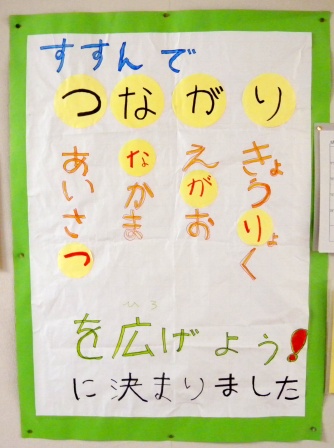 すすんで
つながり
きょうりょく
えがお
なかま
あいさつ
を広げよう!
に決まりました